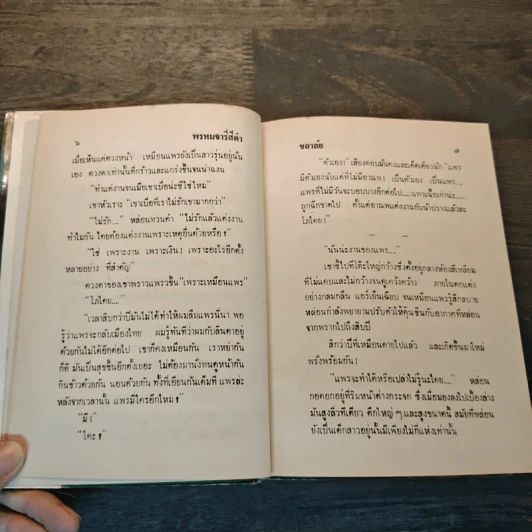 ๖
พรหมจารีสีดำ
เมื่อเห็นแค่ดวงหน้า เหมือนแพรยังเป็นสาวรุ่นอยู่นั่น
เอง ดวงตาเท่านั้นที่กร้าวและแกร่งขึ้นจนน่าฉงน
"ทำแต่งานจนเมียเขาเบื่อน่ะซีใช่ไหม"
เขาหัวเราะ "เขาเบื่อที่เราไม่รักเขามากกว่า"
"ไม่รัก...." หล่อนทวนคำ "ไม่รักแล้วแต่งงาน
ทำไมกัน ใดยต้องแต่งงานเพราะเหตุอื่นด้วยหรือ ?"
"ใช่ เพราะงาน เพราะเงิน ! เพราะอะไรอีกตั้ง
หลายอย่าง ที่สำคัญ"
ดวงตาของเขาพราวแพรวขึ้น "เพราะเหมือนแพร"
"โภไคย !"
"เวลาสิบกว่าปีมันไม่ได้ทำให้ผมลืมแพรนี่นา พอ
รู้ว่าแพรจะกลับเมืองไทย ผมรู้ทันทีว่าผมกับสินดายอยู่
ด้วยกันไม่ได้อีกต่อไป เขาก็คงเหมือนกัน เราหย่ากัน
ก็ดี มันเป็นสุขขึ้นอีกตั้งเยอะ ไม่ต้องมานั่งทนดูหน้ากัน
กินข้าวด้วยกัน นอนด้วยกัน ทั้งที่เอียนกันเต็มที แพรล่ะ
หลังจากเวลานั้น แพรมีใครอีกไหม ?"
"มี !"
"ใคร ?"
ชลาลัย
๗
"ตัวเอง !" เสียงตอบมั่นคงและเด็ดเดี่ยวนัก "แพร
มีตัวเองนับแต่ที่ไม่มีอาณพ เป็นตัวเอง เป็นแพร....
แพรที่ไม่มีวันจะบอบบางอีกต่อไป.... แพรเนื้อเก่าน่ะ....
ถูกฉีกขาดไป ตั้งแต่อาณพแต่งงานกับน้าปรางแล้วละ
โภไคย !"
"นั่นน่ะงานของแพร...."
เขาชี้ไปที่โต๊ะใหญ่กว้างซึ่งตั้งอยู่กลางห้องสี่เหลี่ยม
ที่ไม่แคบและไม่กว้างจนดูเคว้งคว้าง ภายในตกแต่ง
อย่างกลมกลืน แอร์เย็นเฉียบ จนเหมือนแพรรู้สึกสบาย
หล่อนกำลังพยายามปรับตัวให้คุ้นชินกับอากาศที่หล่อน
จากพรากไปถึงสิบปี
สิบกว่าปีที่เหมือนตายไปแล้ว และเกิดขึ้นมาใหม่
พรั่งพร้อมกัน !
"แพรจะทำได้หรือเปล่าไม่รู้นะไคย...." หล่อน
กอดอกอยู่ที่ริมหน้าต่างกระจก ซึ่งเมื่อมองลงไปเบื้องล่าง
มันสูงลิ่วทีเดียว ตึกใหญ่ ๆ และสูงขนาดนี้ สมัยที่หล่อน
ยังเป็นเด็กสาวอยู่นั้นมีเพียงไม่กี่แห่งเท่านั้น